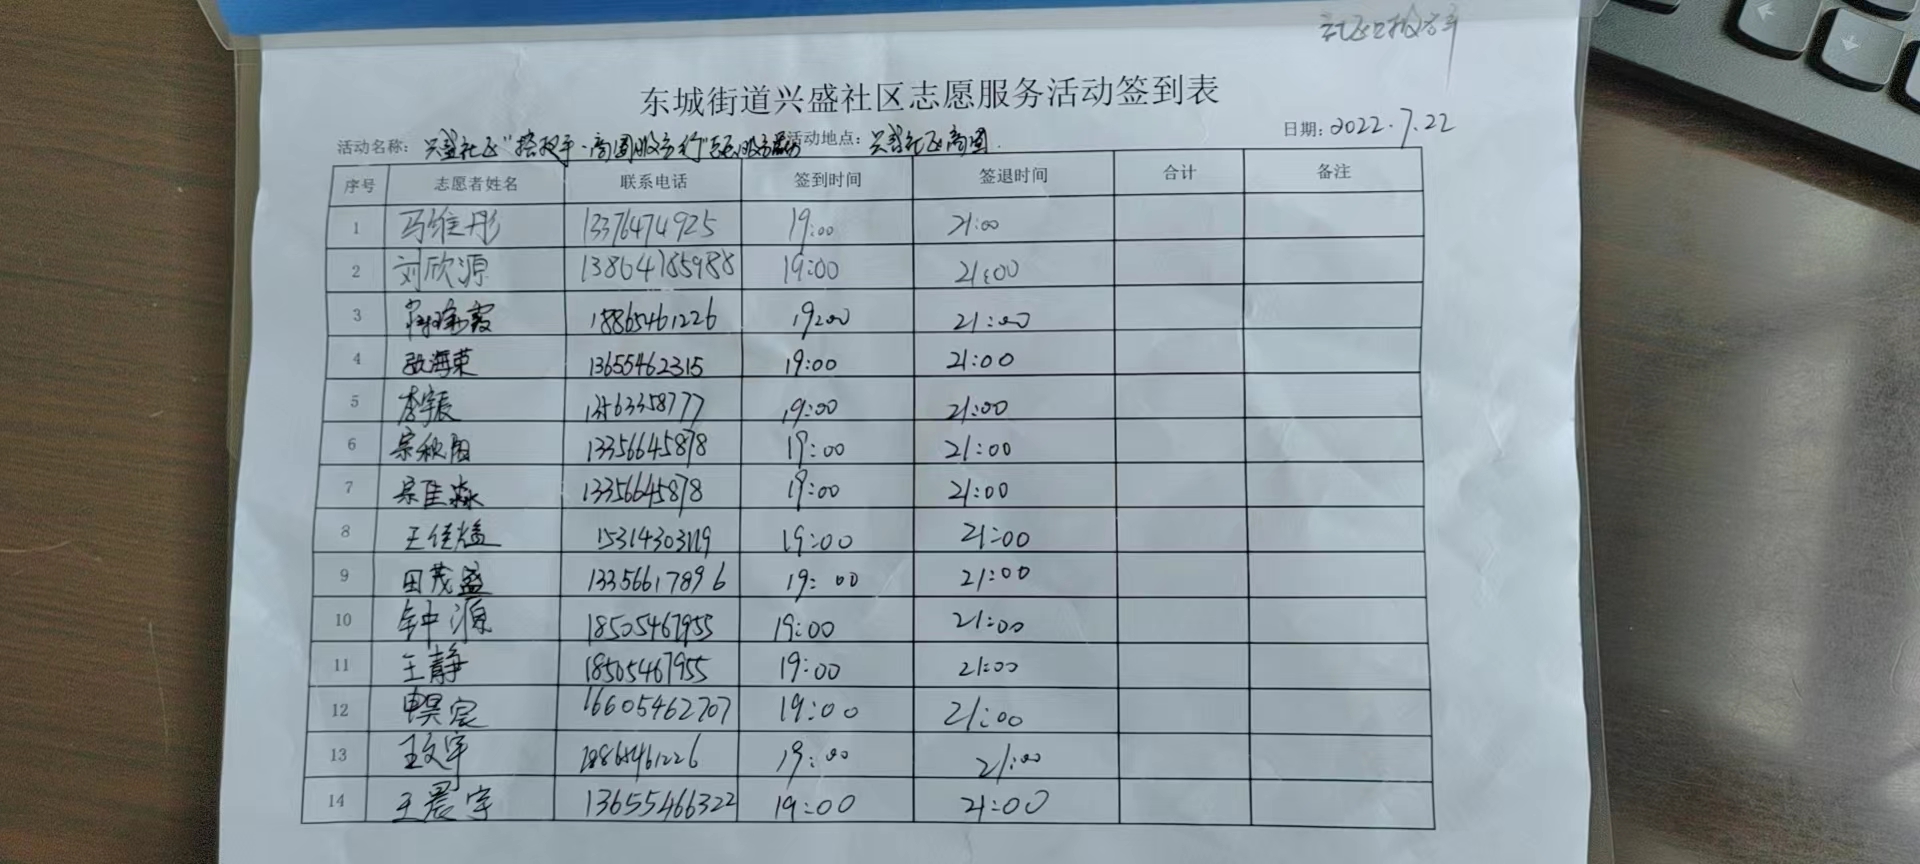 社区报告单
东城街道兴盛社区志愿服务活动签到表
活动名称: 兴盛社区 商圈服务行 志愿服务活动 活动地点: 兴盛社区商圈. 日期: 2022.7.22
序号 志愿者姓名 联系电话 签到时间 签退时间 合计 备注
1 马维彤 13376474925 19:00 21:00
2 刘欣源 13864785988 19:00 21:00
3 15865461226 19:00 21:00
4 张海荣 13655462315 19:00 21:00
5 李宇辰 13563358777 19:00 21:00
6 宗秋阳 13356645878 19:00 21:00
7 宗佳淼 13356645878 19:00 21:00
8 王佳 19:00 21:00
9 田茂盛 13356617896 19:00 21:00
10 钟源 18505467955 19:00 21:00
11 王静 18505467955 19:00 21:00
12 申昊宸 16605462707 19:00 21:00
13 王文宇 19:00 21:00
14 王晨宇 13655466322 19:00 21:00